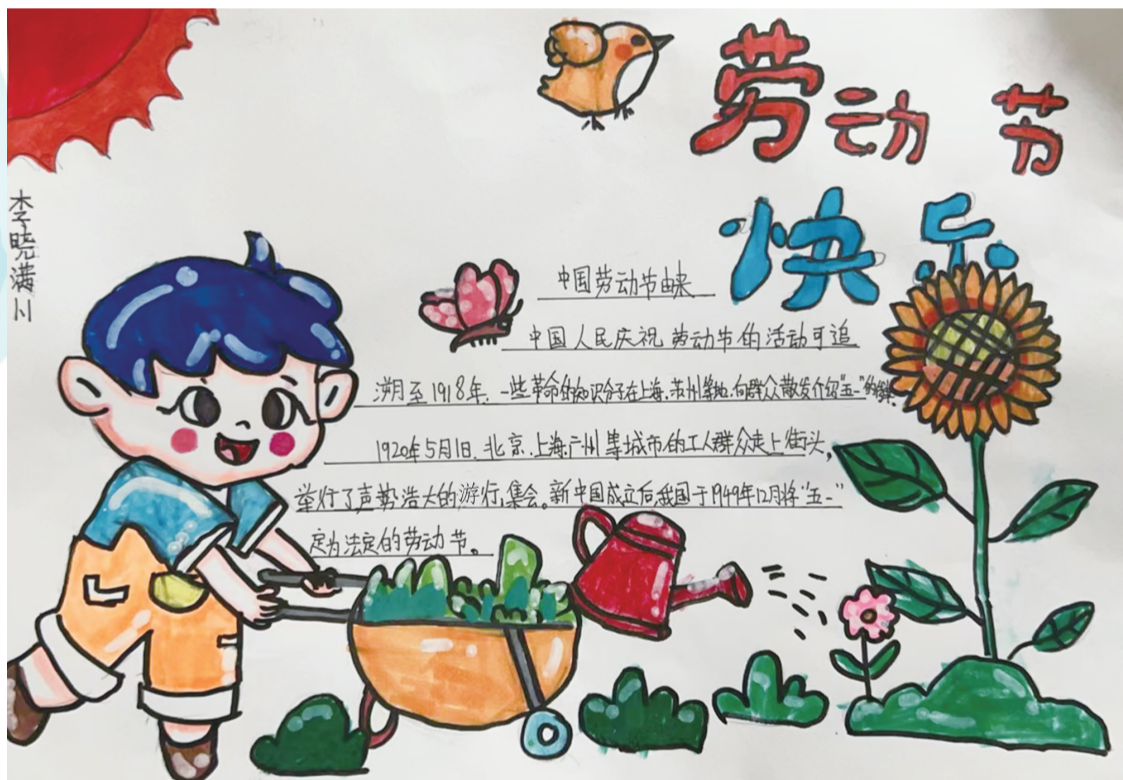 劳动节
快乐
李晓满川
中国劳动节由来
中国人民庆祝劳动节的活动可追
溯至1918年,一些革命的知识分子在上海、苏州等地,向群众散发介绍"五一"的
1920年5月1日,北京、上海、广州等城市的工人群众走上街头,
举行了声势浩大的游行、集会。新中国成立后,我国于1949年12月将"五一"
定为法定的劳动节。